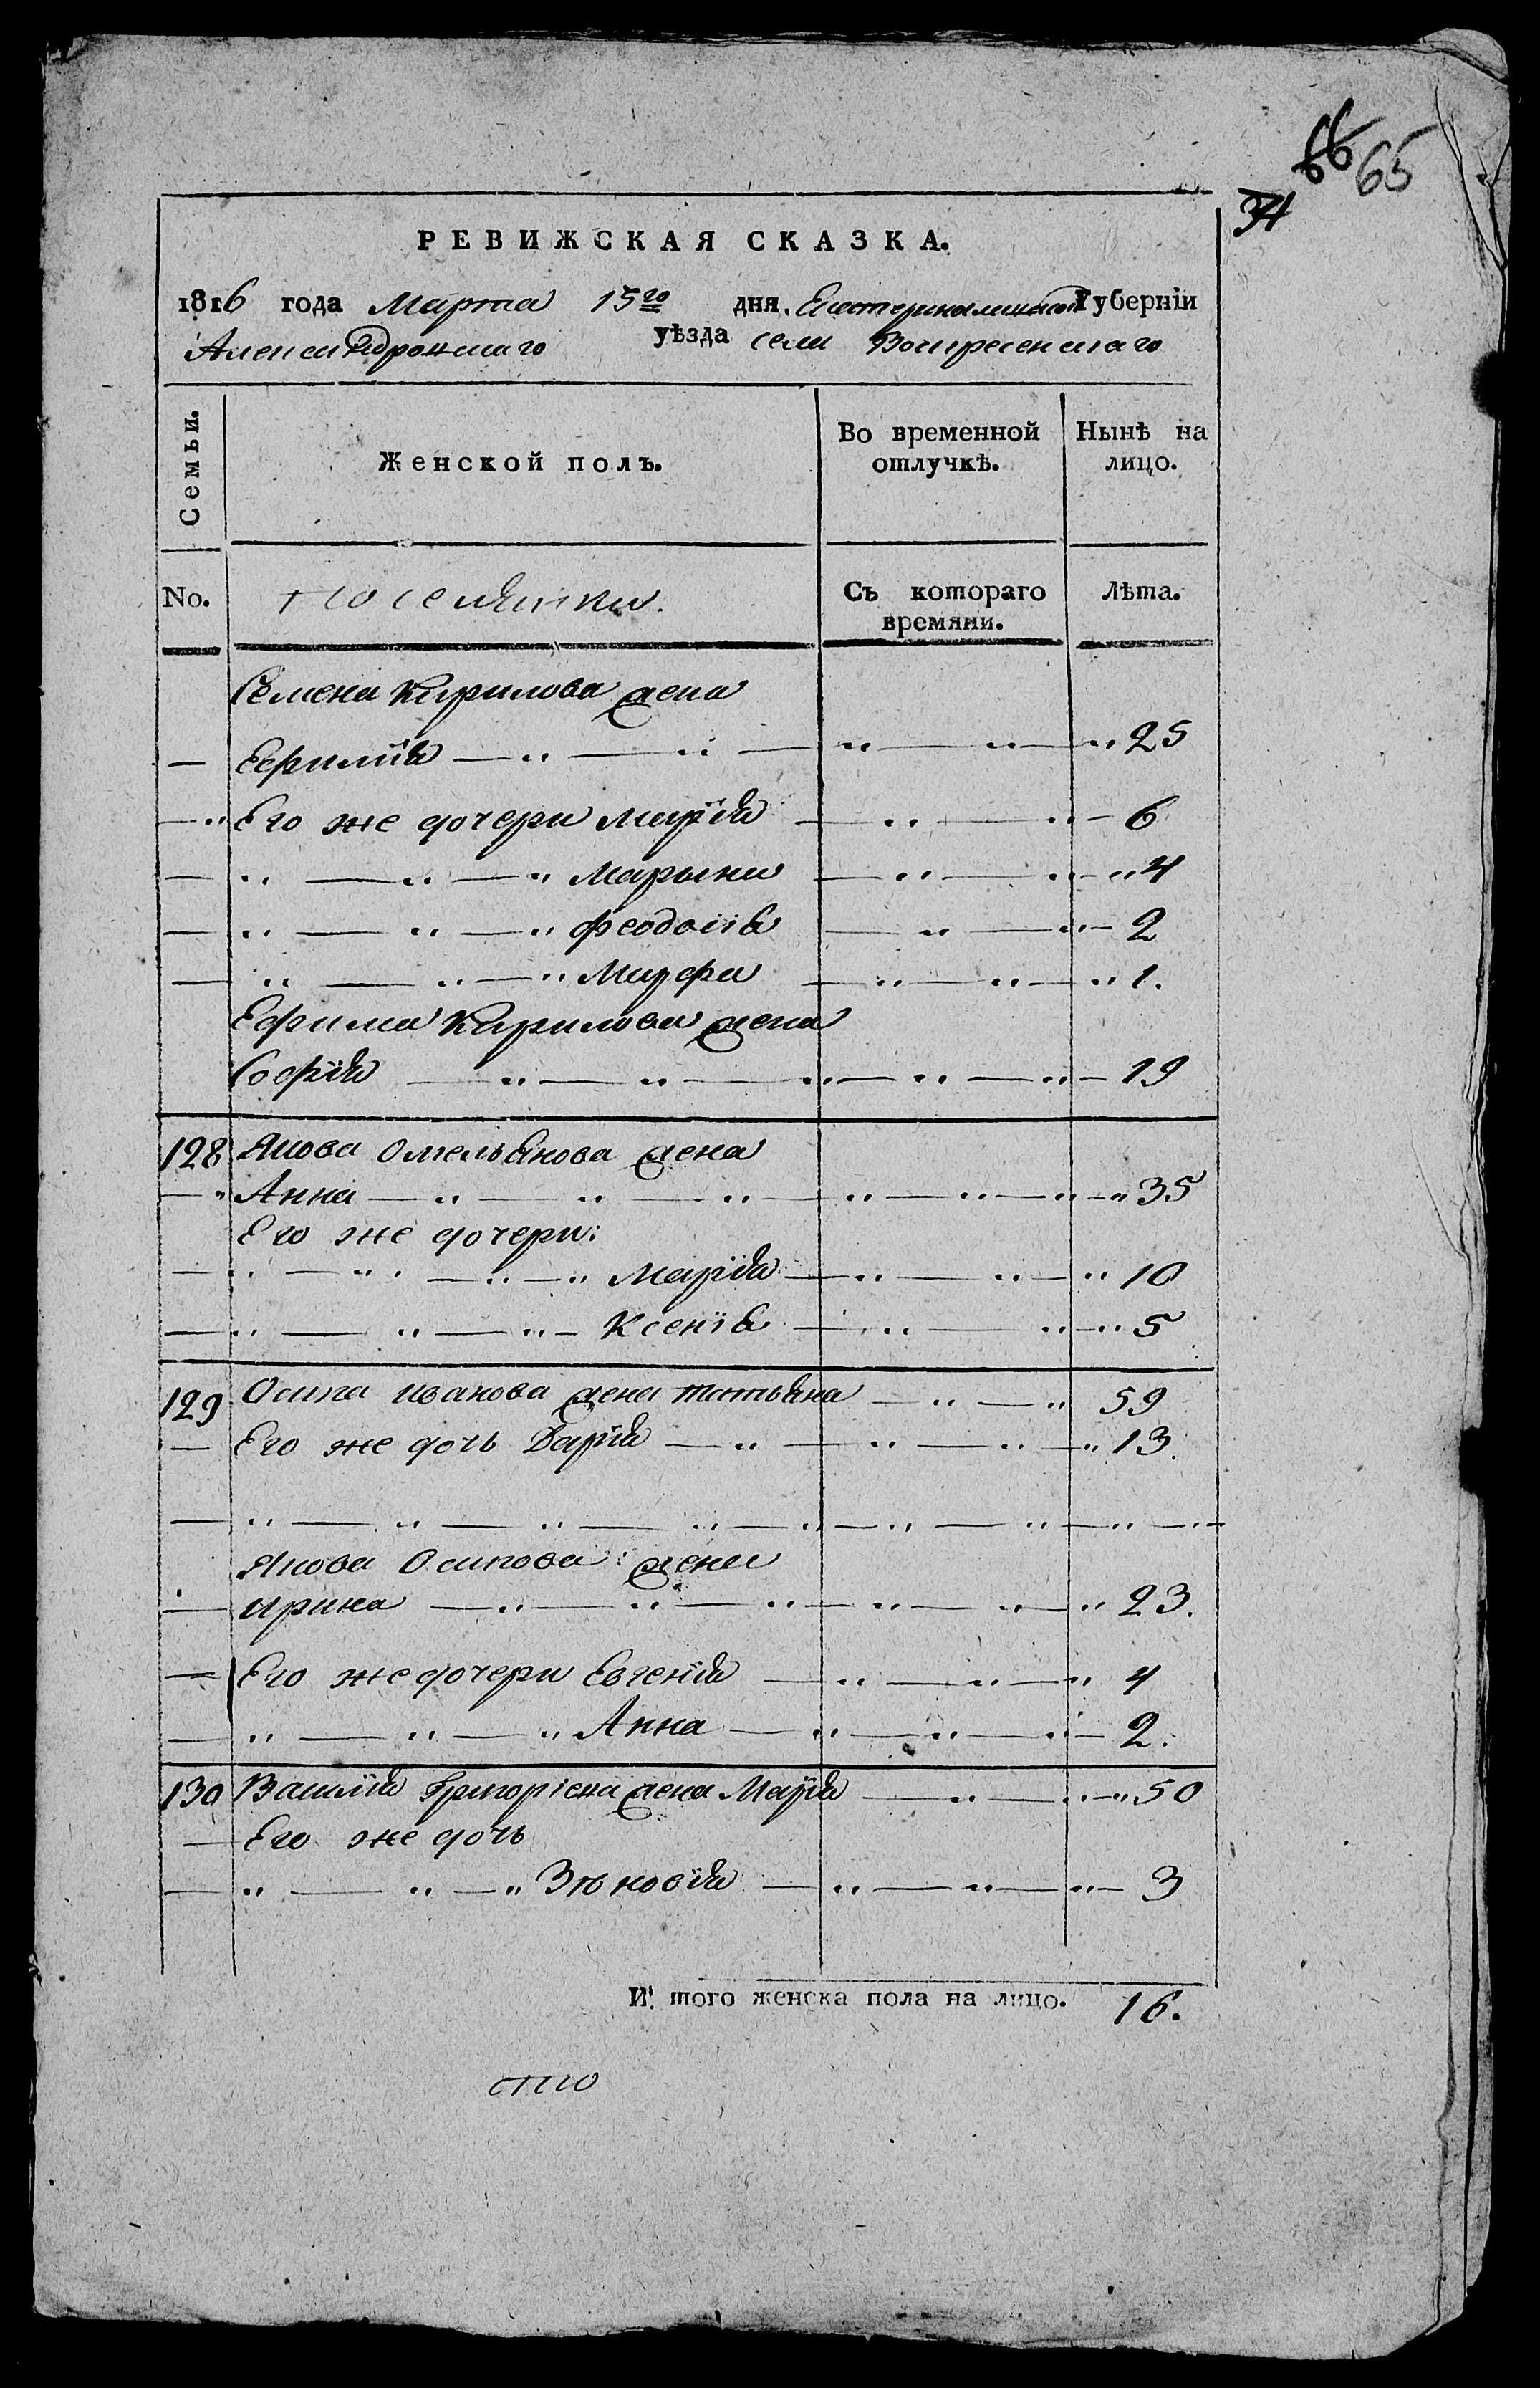 66 65
34
РЕВИЖСКАЯ СКАЗКА.
1816 года Марта 15го дня. Екатеринославской Губерніи
Александровского уѣзда села Воскресенскаго
Семьи. Женской полъ. Во временной отлучкѣ. Нынѣ на лицо.
No. поселянки. Съ котораго времяни. Лѣта.
Семена Кирилова жена
— Ефимія — „ — „ — „ — „ — „ 25
— „ Его же дочери Марія — „ — „ — 6
— „ — „ — „ Марына — „ — „ — „ 4
— „ — „ — „ Феодосія — „ — „ — 2
— „ — „ — „ Марфа — „ — „ — „ 1.
Ефима Кирилова жена
Софія — „ — „ — „ — „ — „ — 19
128 Якова Омельянова жена
— „ Анна — „ — „ — „ — „ — „ — „ — „ 35
Его же дочери:
— „ — „ — „ — „ Марія — „ — „ — „ 10
— „ — „ — „ — Ксенія — „ — „ — „ 5
129 Осипа Иванова жена Татьяна — „ — „ 59
— Его же дочь Дарія — „ — „ — „ — „ 13.
— „ — „ — „ — „ — „ — „ — „ — „ — „ —
Якова Осипова жена
— Ирина — „ — „ — „ — „ — „ — „ 23.
— Его же дочери Евгенія — „ — „ — „ 4
— „ — „ — „ Анна — „ — „ — „ — 2.
130 Василія Григоріева жена Марія — „ — „ — „ 50
— Его же дочь
— „ — „ — „ Зѣновія — „ — „ — „ — 3
И того женска пола на лицо. 16.